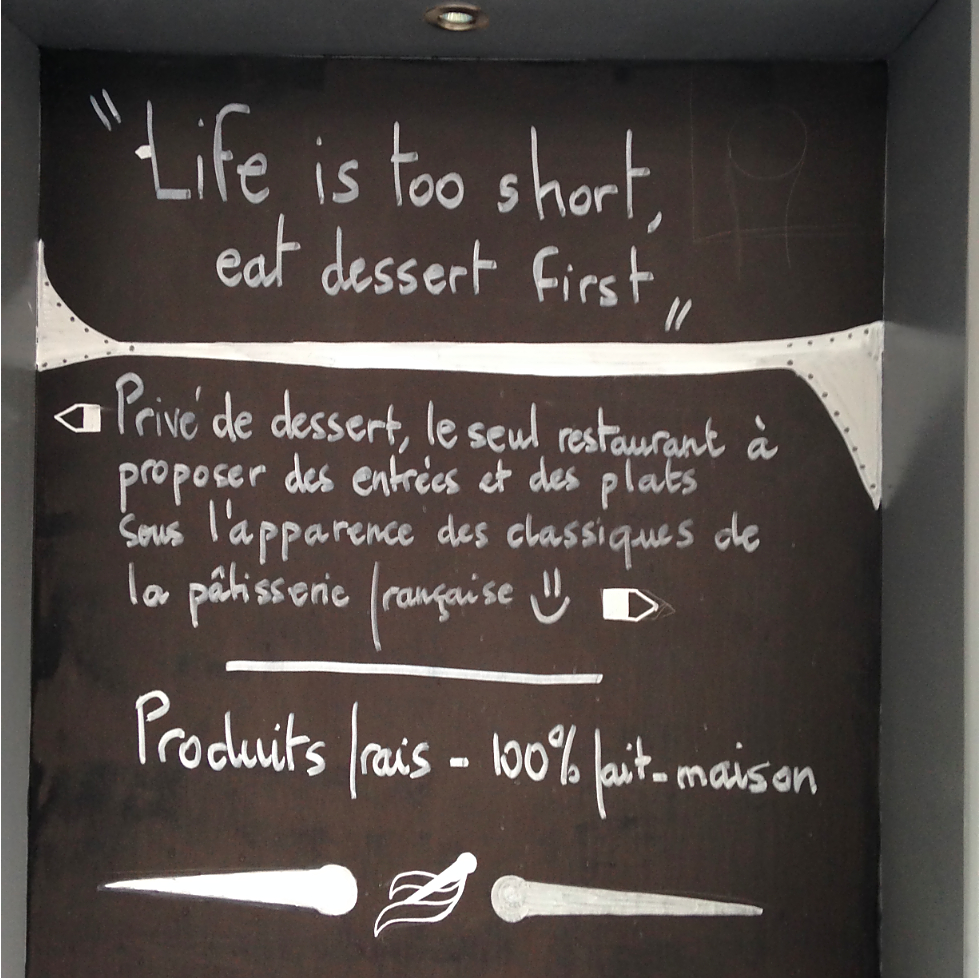 "Life is too short,
eat dessert first"
Privé de dessert, le seul restaurant à
proposer des entrées et des plats
sous l'apparence des classiques de
la pâtisserie française
Produits frais - 100% fait-maison